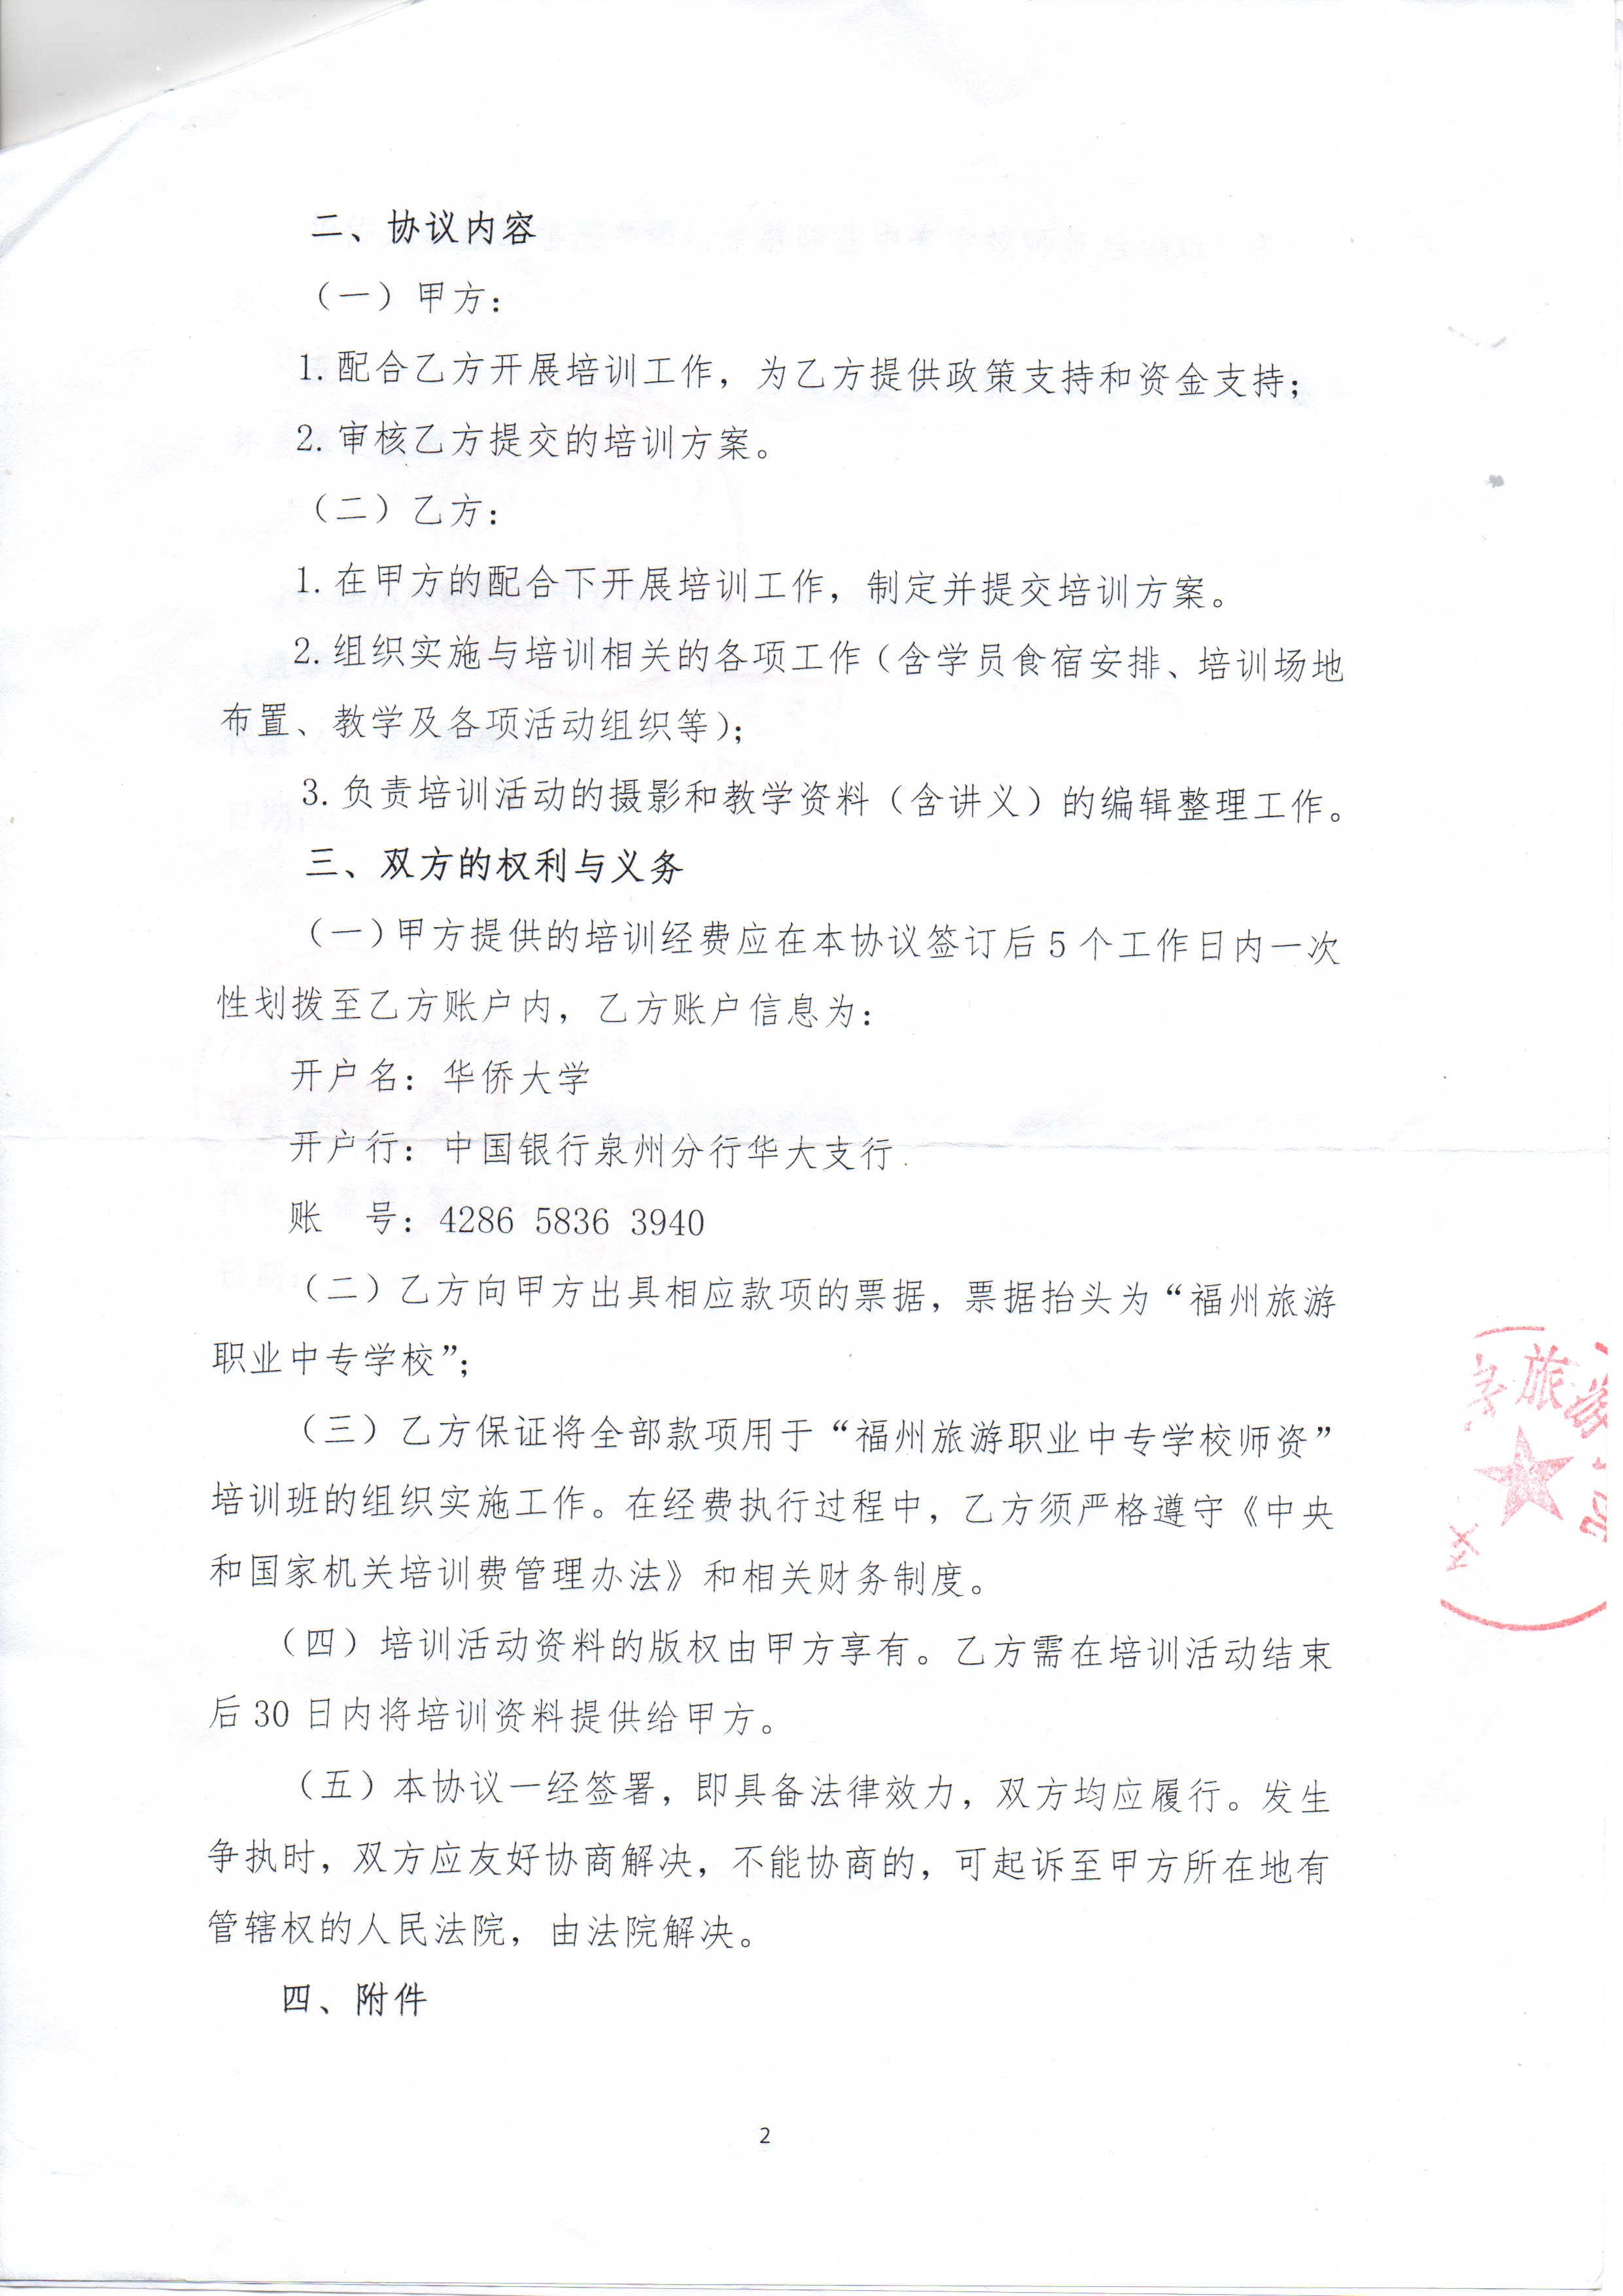 二、协议内容
（一）甲方：
1.配合乙方开展培训工作，为乙方提供政策支持和资金支持；
2.审核乙方提交的培训方案。
（二）乙方：
1.在甲方的配合下开展培训工作，制定并提交培训方案。
2.组织实施与培训相关的各项工作（含学员食宿安排、培训场地
布置、教学及各项活动组织等）；
3.负责培训活动的摄影和教学资料（含讲义）的编辑整理工作。
三、双方的权利与义务
（一）甲方提供的培训经费应在本协议签订后5个工作日内一次
性划拨至乙方账户内，乙方账户信息为：
开户名：华侨大学
开户行：中国银行泉州分行华大支行
账　号：4286 5836 3940
（二）乙方向甲方出具相应款项的票据，票据抬头为“福州旅游
职业中专学校”；
（三）乙方保证将全部款项用于“福州旅游职业中专学校师资”
培训班的组织实施工作。在经费执行过程中，乙方须严格遵守《中央
和国家机关培训费管理办法》和相关财务制度。
（四）培训活动资料的版权由甲方享有。乙方需在培训活动结束
后30日内将培训资料提供给甲方。
（五）本协议一经签署，即具备法律效力，双方均应履行。发生
争执时，双方应友好协商解决，不能协商的，可起诉至甲方所在地有
管辖权的人民法院，由法院解决。
四、附件
2
旅游